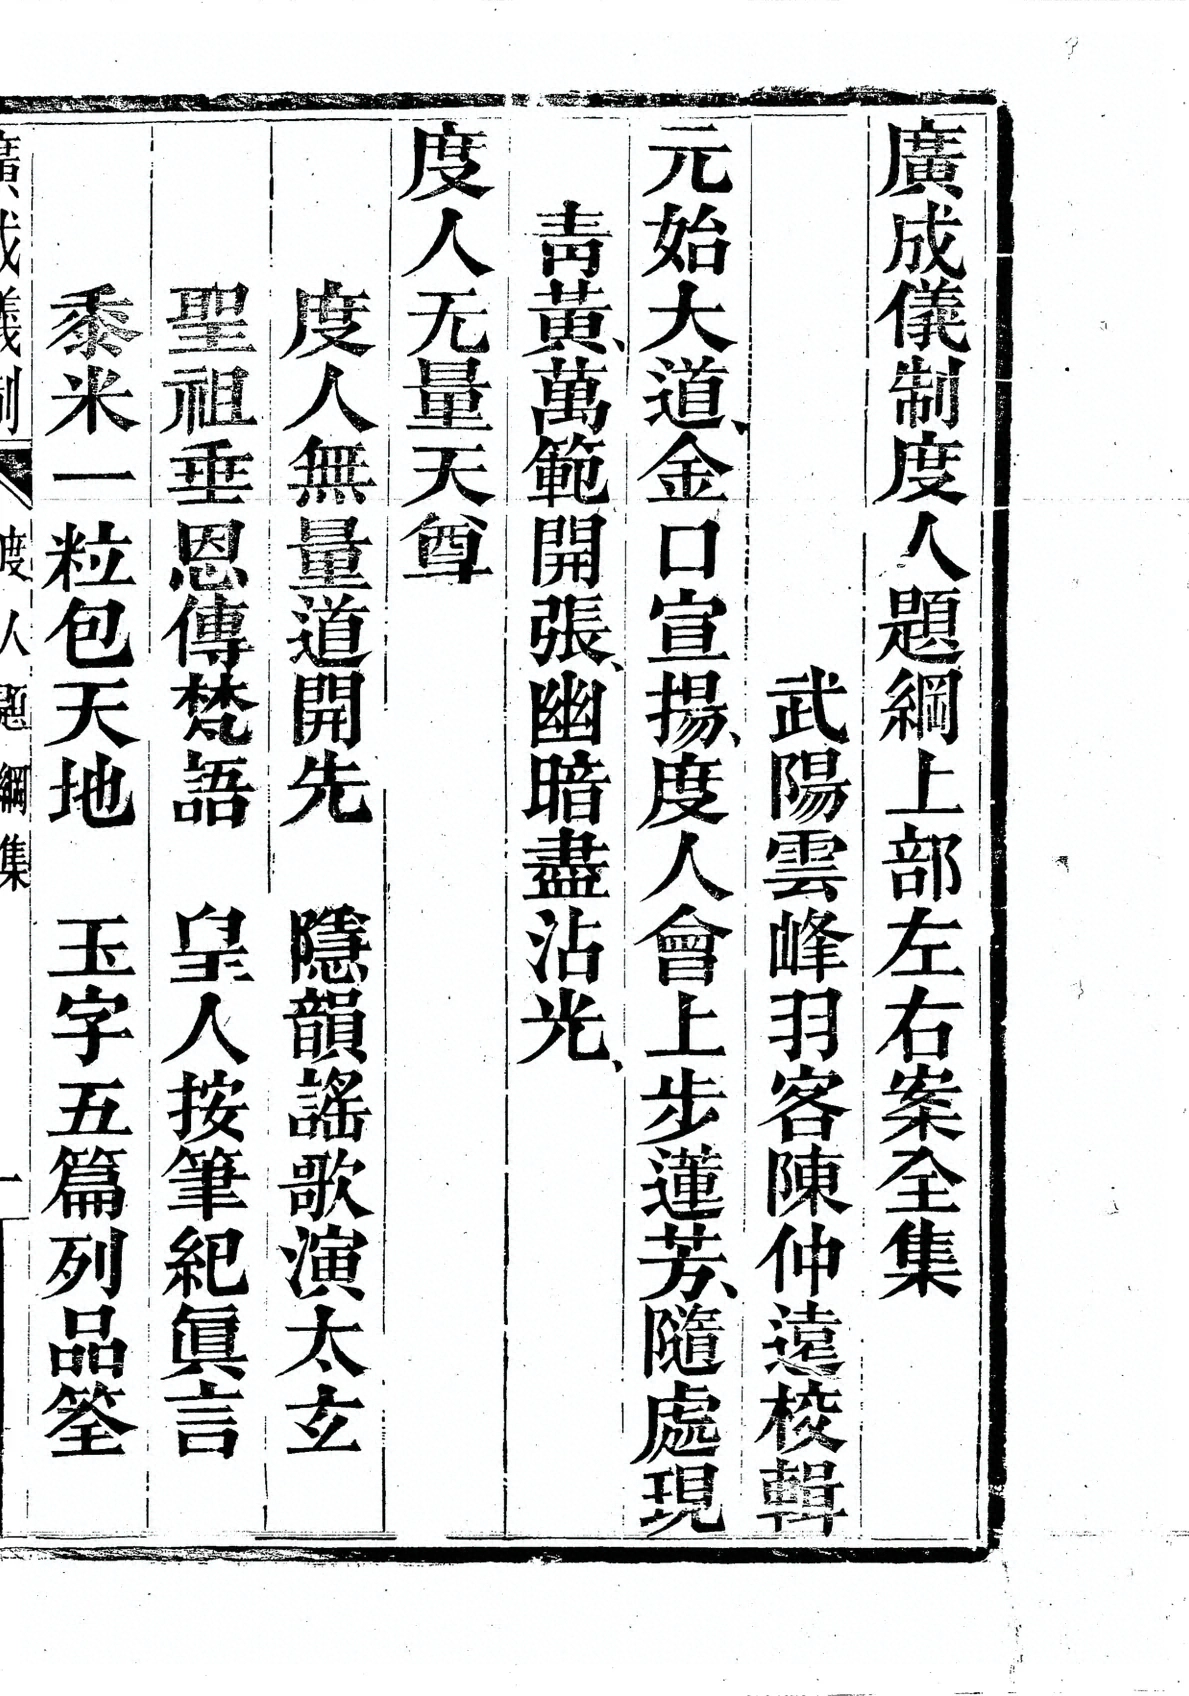 廣成儀制度人題綱上部左右案全集
武陽雲峰羽客陳仲遠校輯
元始大道、金口宣揚、度人會上步蓮芳、隨處現
青黃、萬範開張、幽暗盡沾光、
度人无量天尊
度人無量道開先　隱韻謠歌演太玄
聖祖垂恩傳梵語　皇人按筆紀眞言
黍米一粒包天地　玉字五篇列品筌
廣成儀制　度人題綱集　一